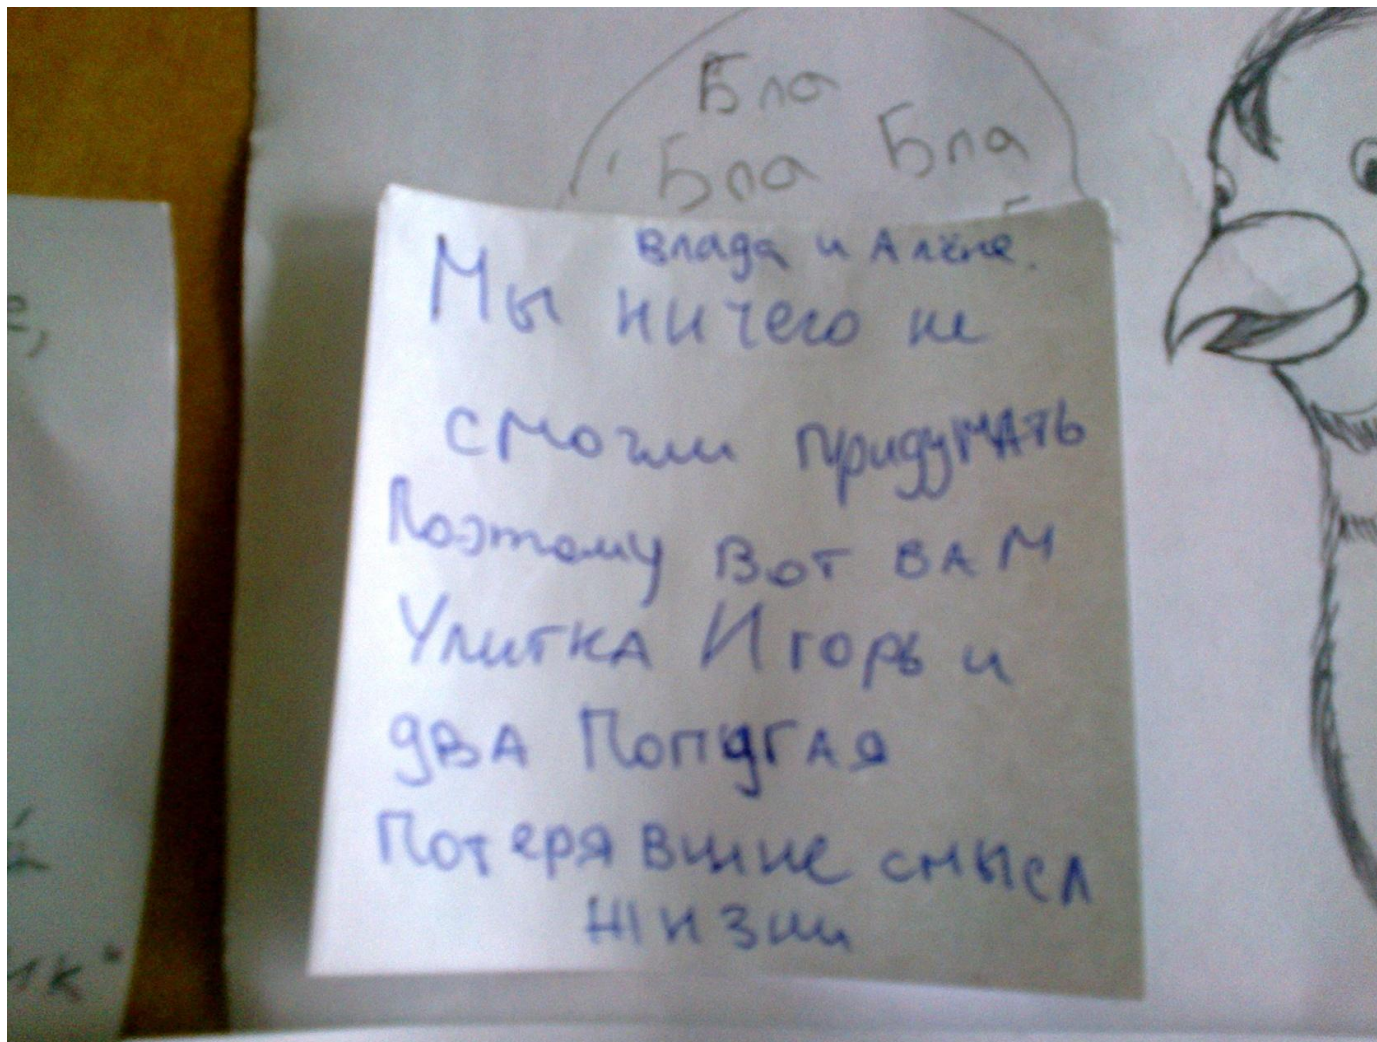 Бла
Бла Бла
Влада и Алёне.
Мы ничего не
смогли придумать
Поэтому Вот ВАМ
Улитка Игорь и
два Попугая
Потерявшие смысл
жизни